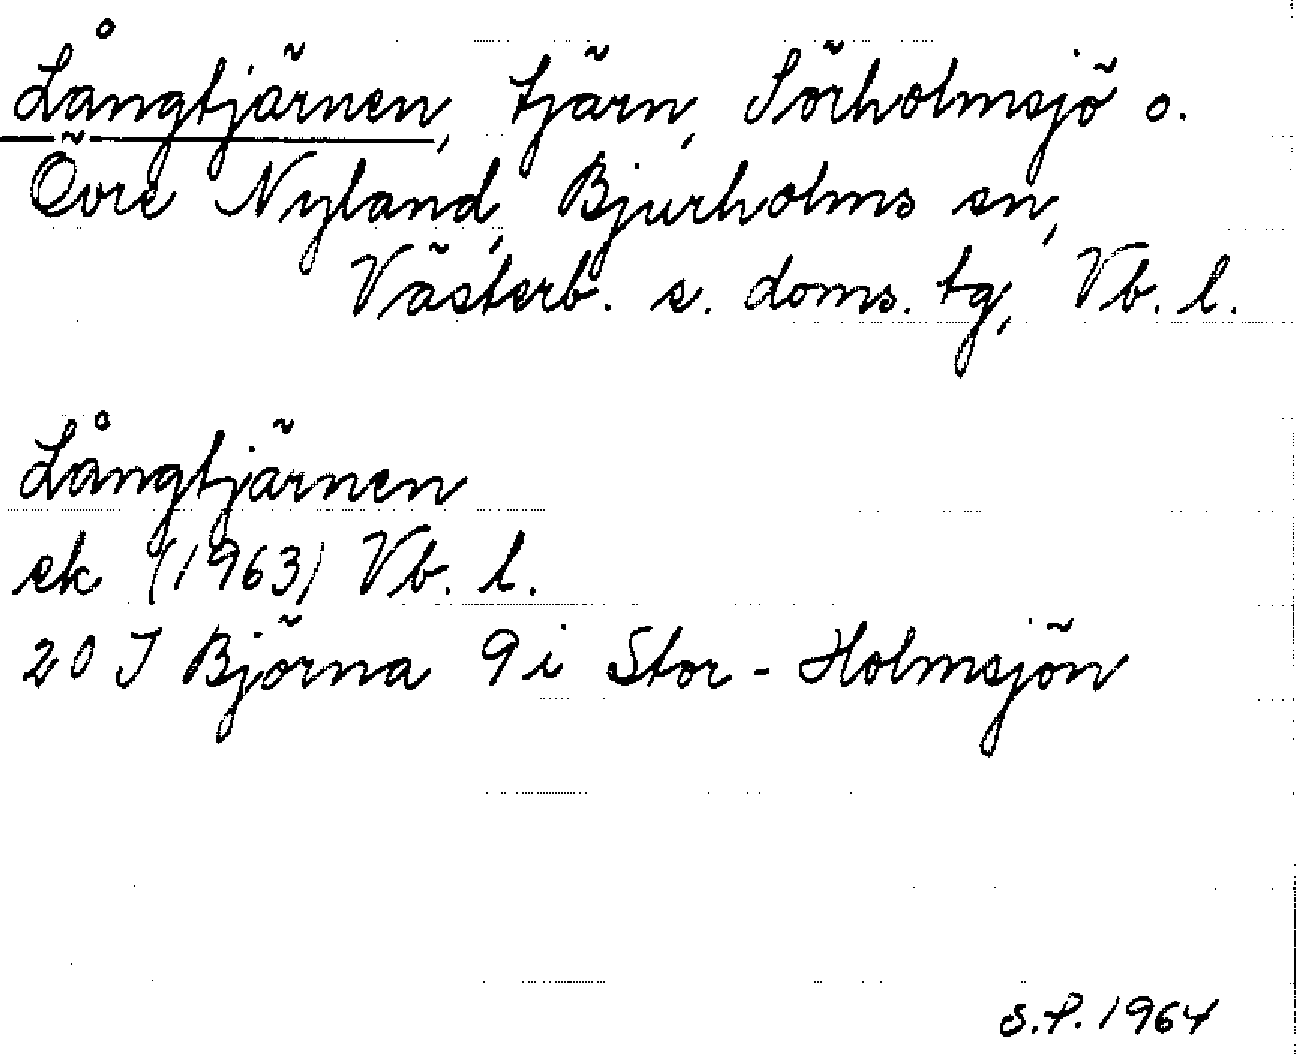 Långtjärnen, tjärn, Sörholmsjö o.
Övre Nyland, Bjurholms sn,
Västerb. s. doms. tg, Vb. l.
Långtjärnen
ek (1963) Vb. l.
20 J Björna 9 i Stor-Holmsjön
S.P. 1964